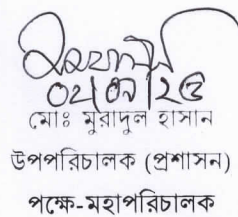 মোঃ মুরাদুল হাসান
উপপরিচালক (প্রশাসন)
পক্ষে-মহাপরিচালক